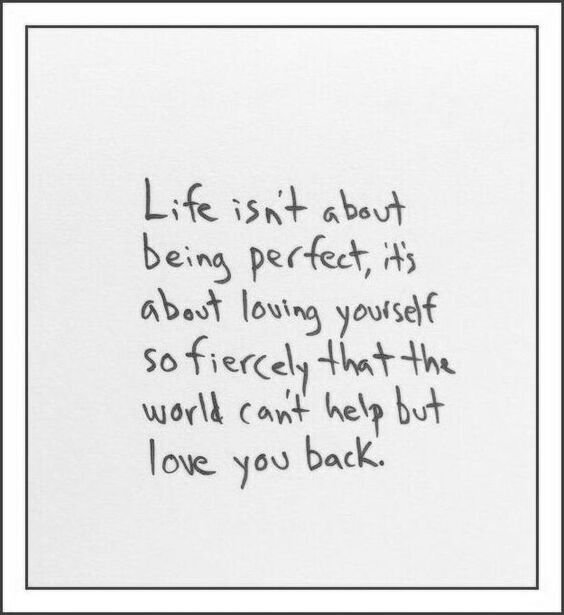 Life isn't about
being perfect, it's
about loving yourself
so fiercely that the
world can't help but
love you back.